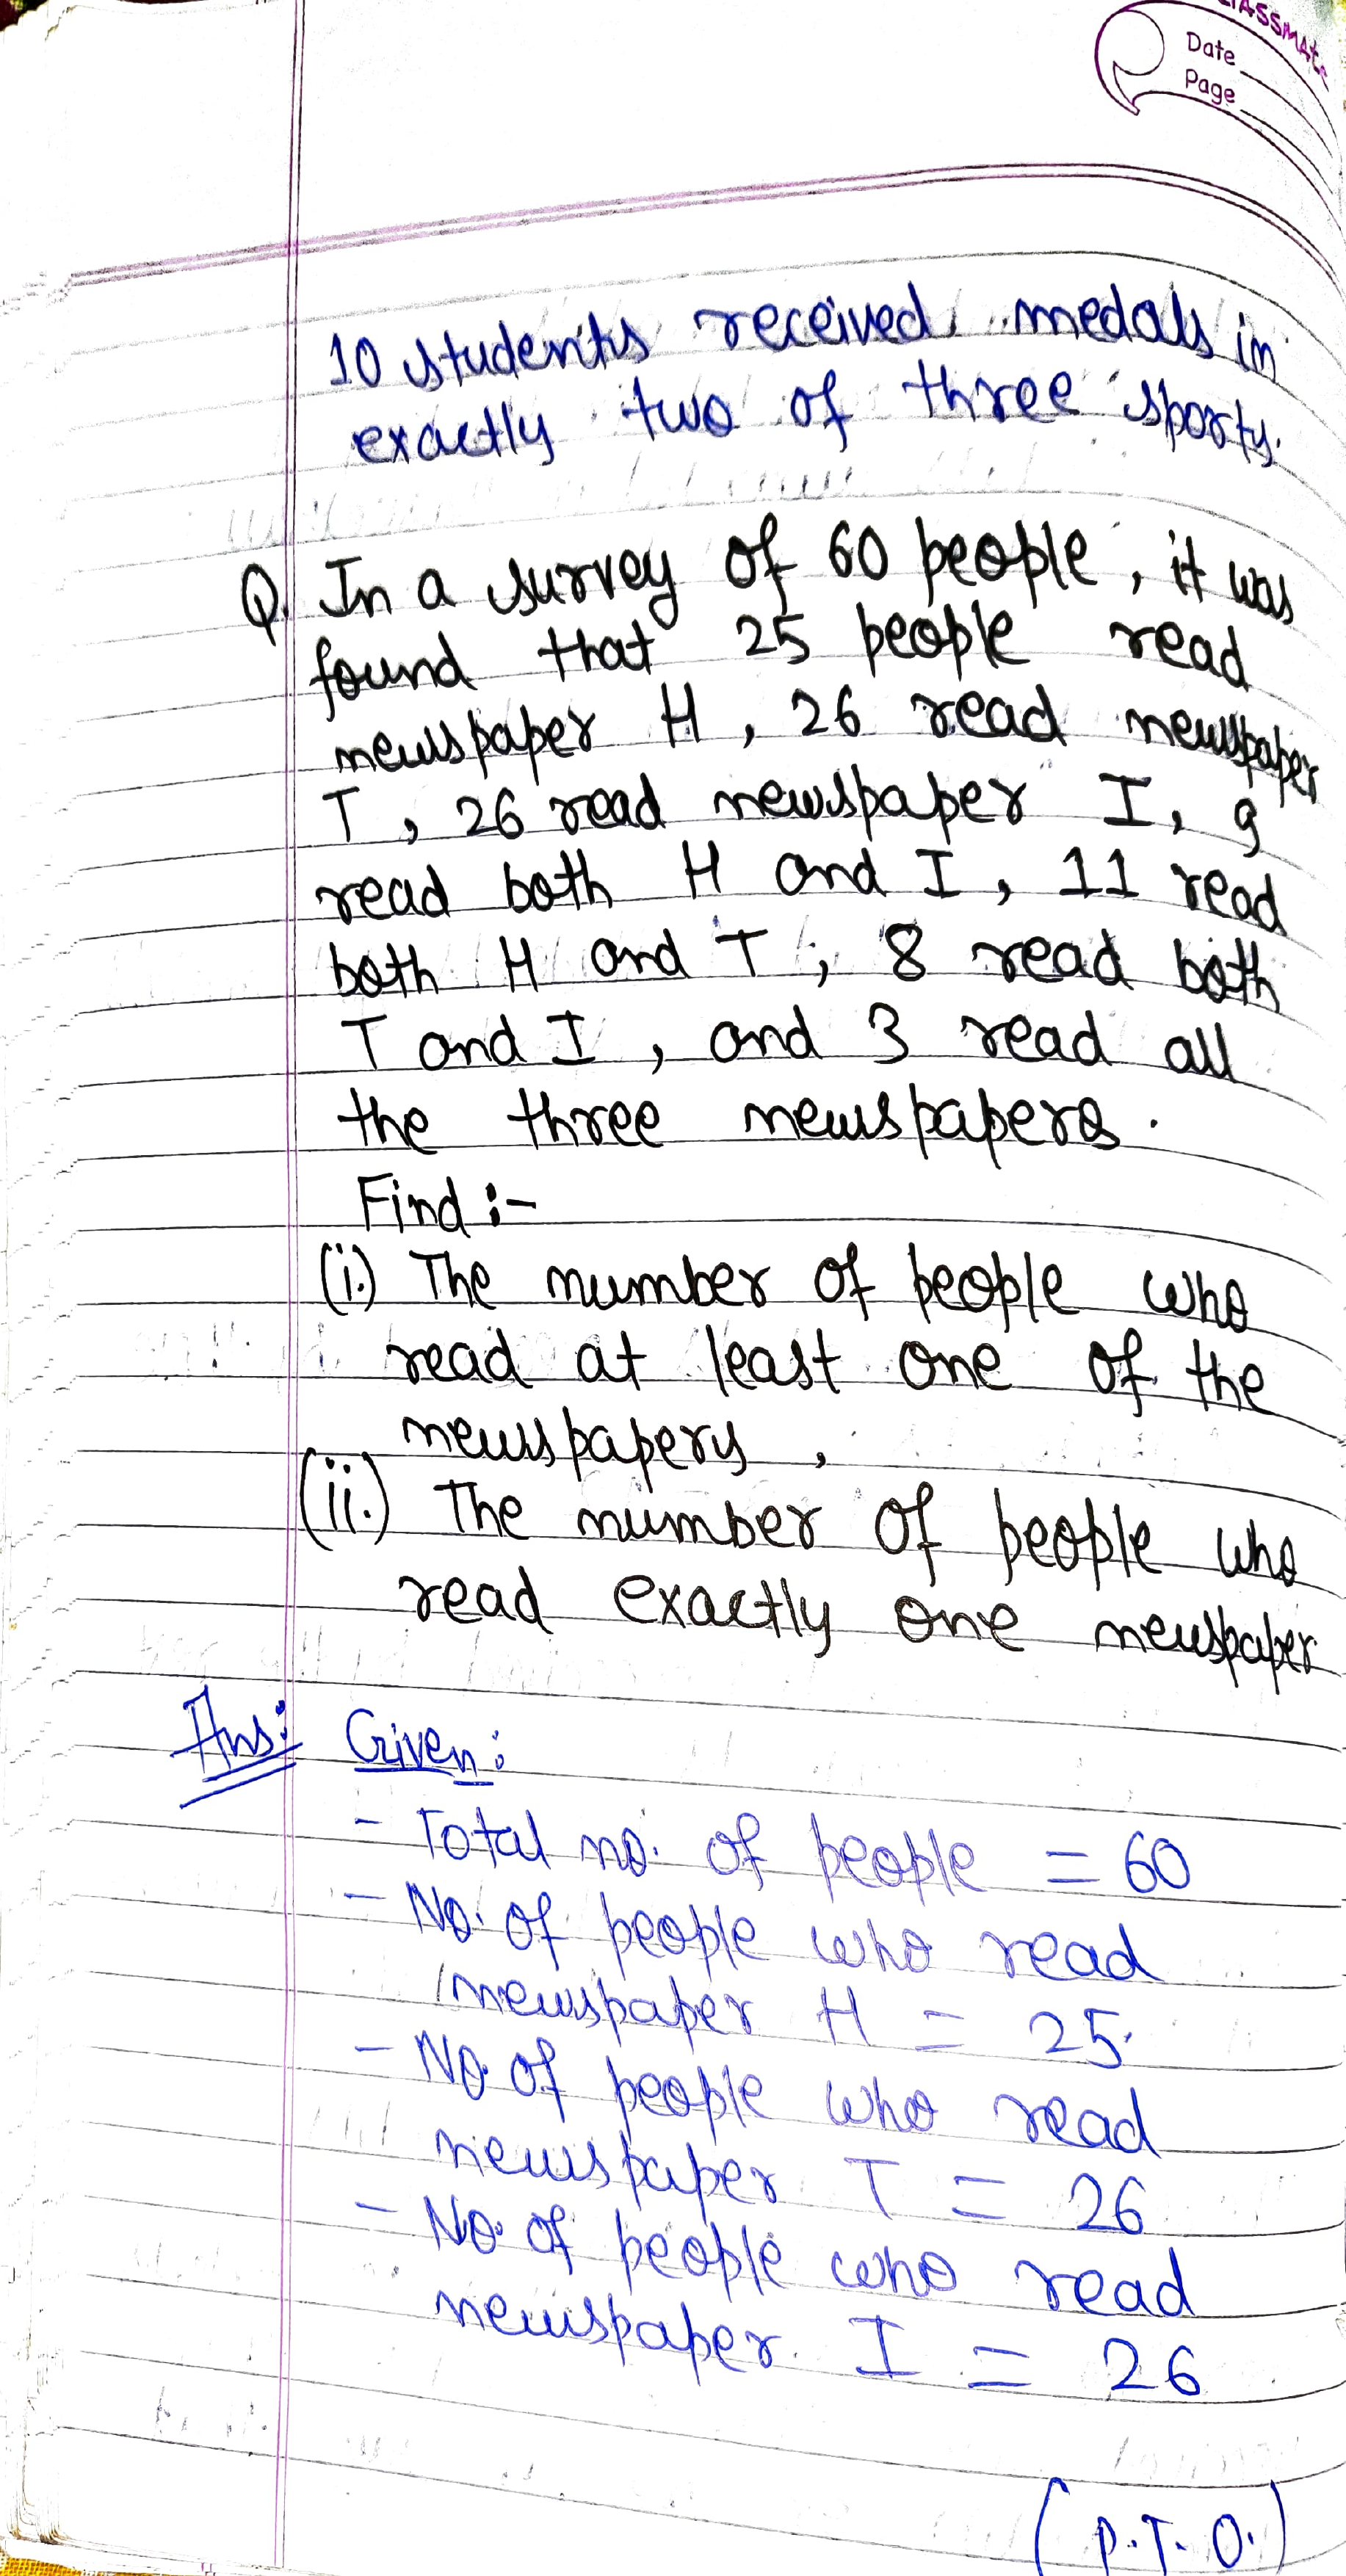 CLASSMATE
Date
Page
10 students received medals in
exactly two of three sports.
Q. In a survey of 60 people, it was
found that 25 people read
newspaper H, 26 read newspaper
T, 26 read newspaper I, 9
read both H and I, 11 read
both H and T, 8 read both
T and I, and 3 read all
the three newspapers.
Find :-
(i.) The number of people who
read at least one of the
newspapers,
(ii.) The number of people who
read exactly one newspaper
Ans: Given:
- Total no. of people = 60
- No. of people who read
newspaper H = 25.
- No. of people who read
newspaper T = 26
- No. of people who read
newspaper I = 26
(P.T.O.)